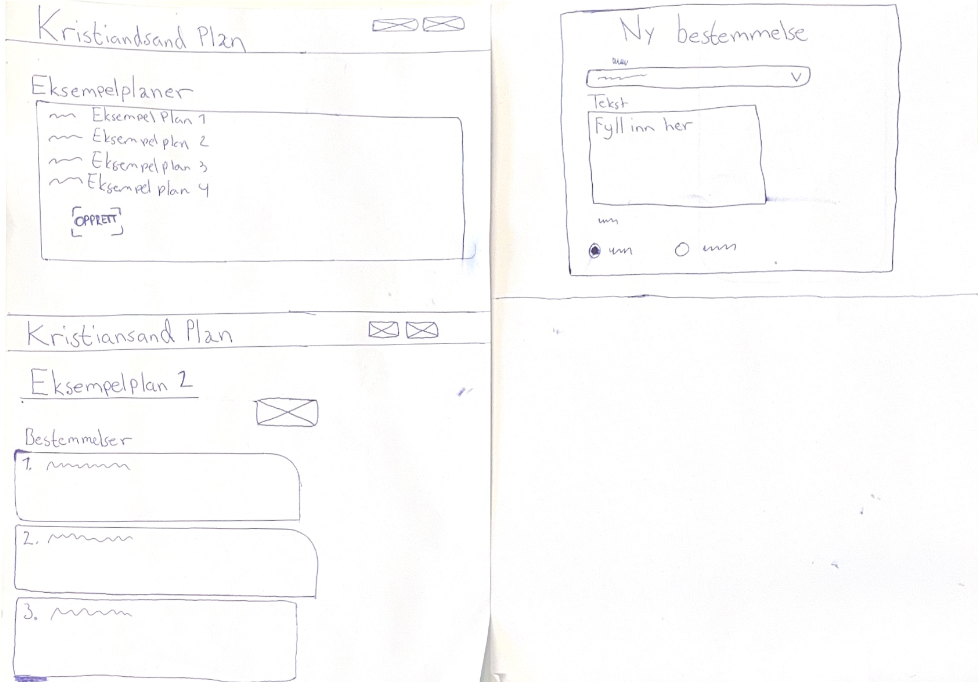 Kristiandsand Plan
Eksempelplaner
Eksempel Plan 1
Eksempel plan 2
Eksempel plan 3
Eksempel plan 4
OPPRETT
Kristiansand Plan
Eksempelplan 2
Bestemmelser
1.
2.
3.
Ny bestemmelse
Tekst
Fyll inn her